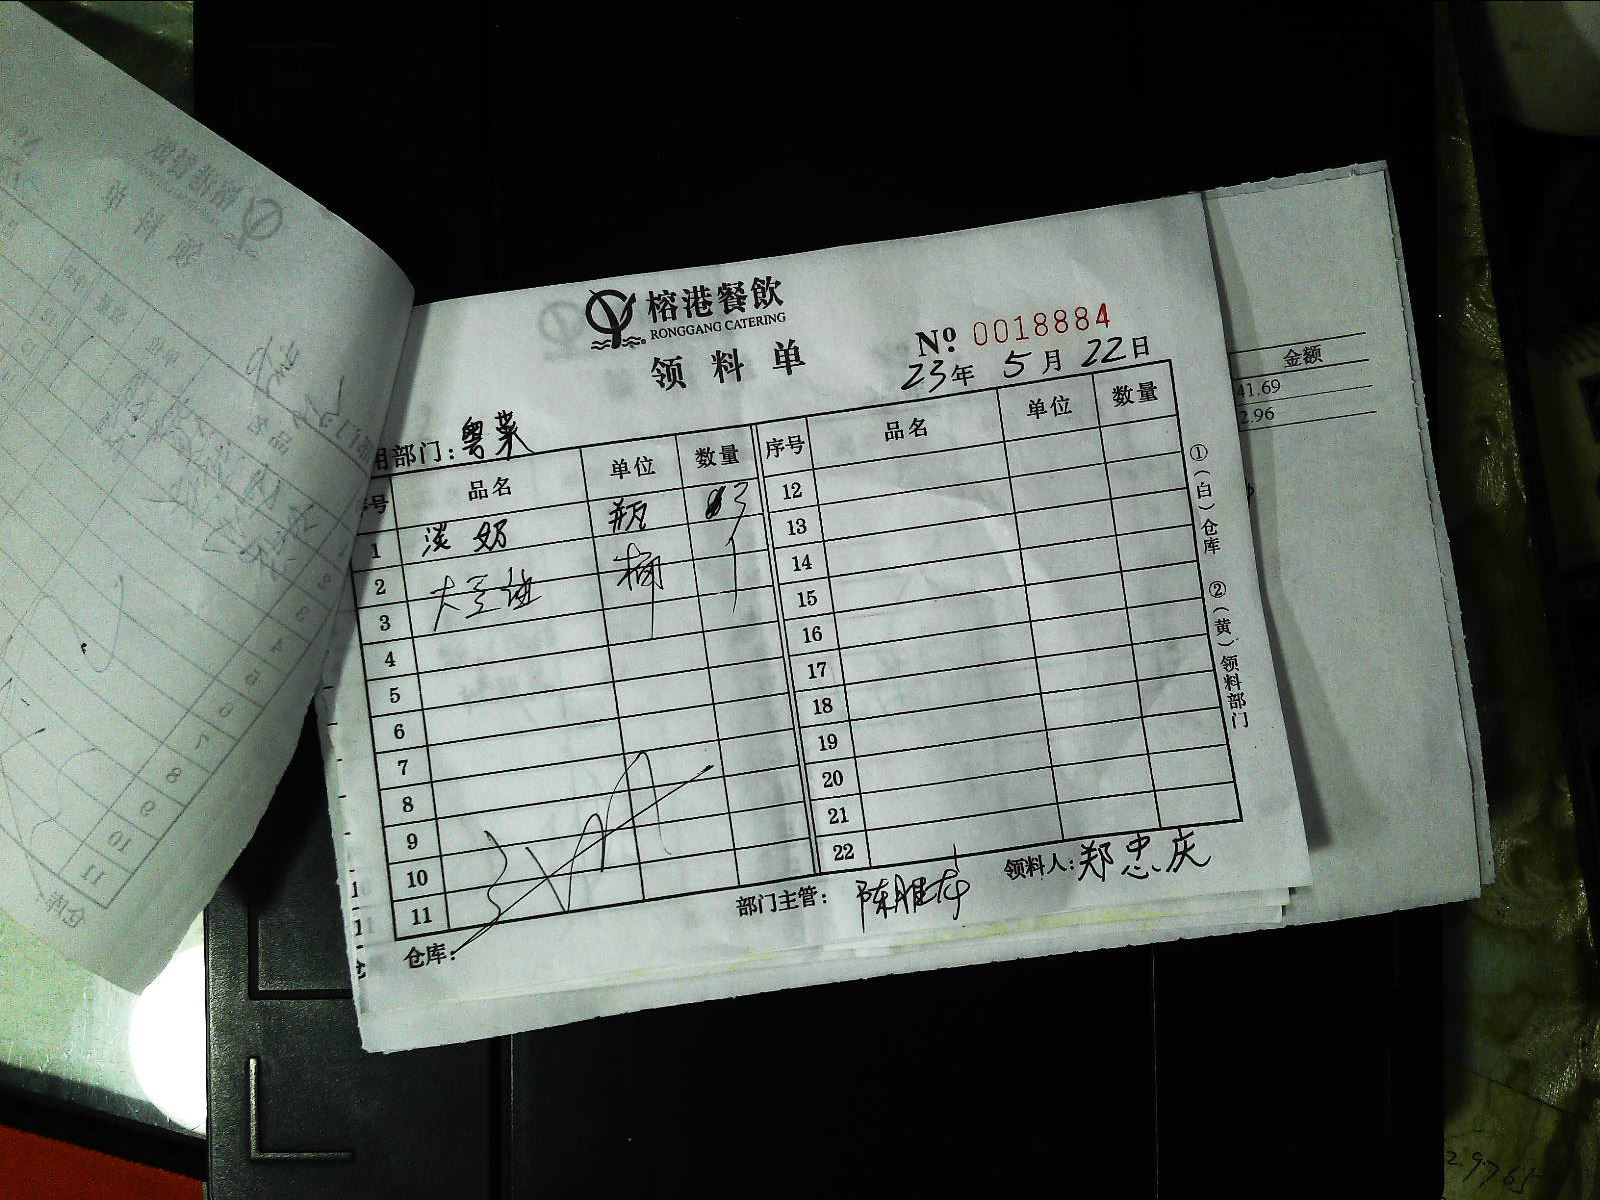 榕港餐飲
RONGGANG CATERING
领料单
№ 0018884
23年 5月 22日
用部门：粤菜
序号 品名 单位 数量 序号 品名 单位 数量
1 淡奶 瓶 3 12
2 桶 1 13
3 14
4 15
5 16
6 17
7 18
8 19
9 20
10 21
11 22
仓库：
部门主管：
领料人：郑忠庆
①（白）仓库 ②（黄）领料部门
金额
41.69
2.96
29765